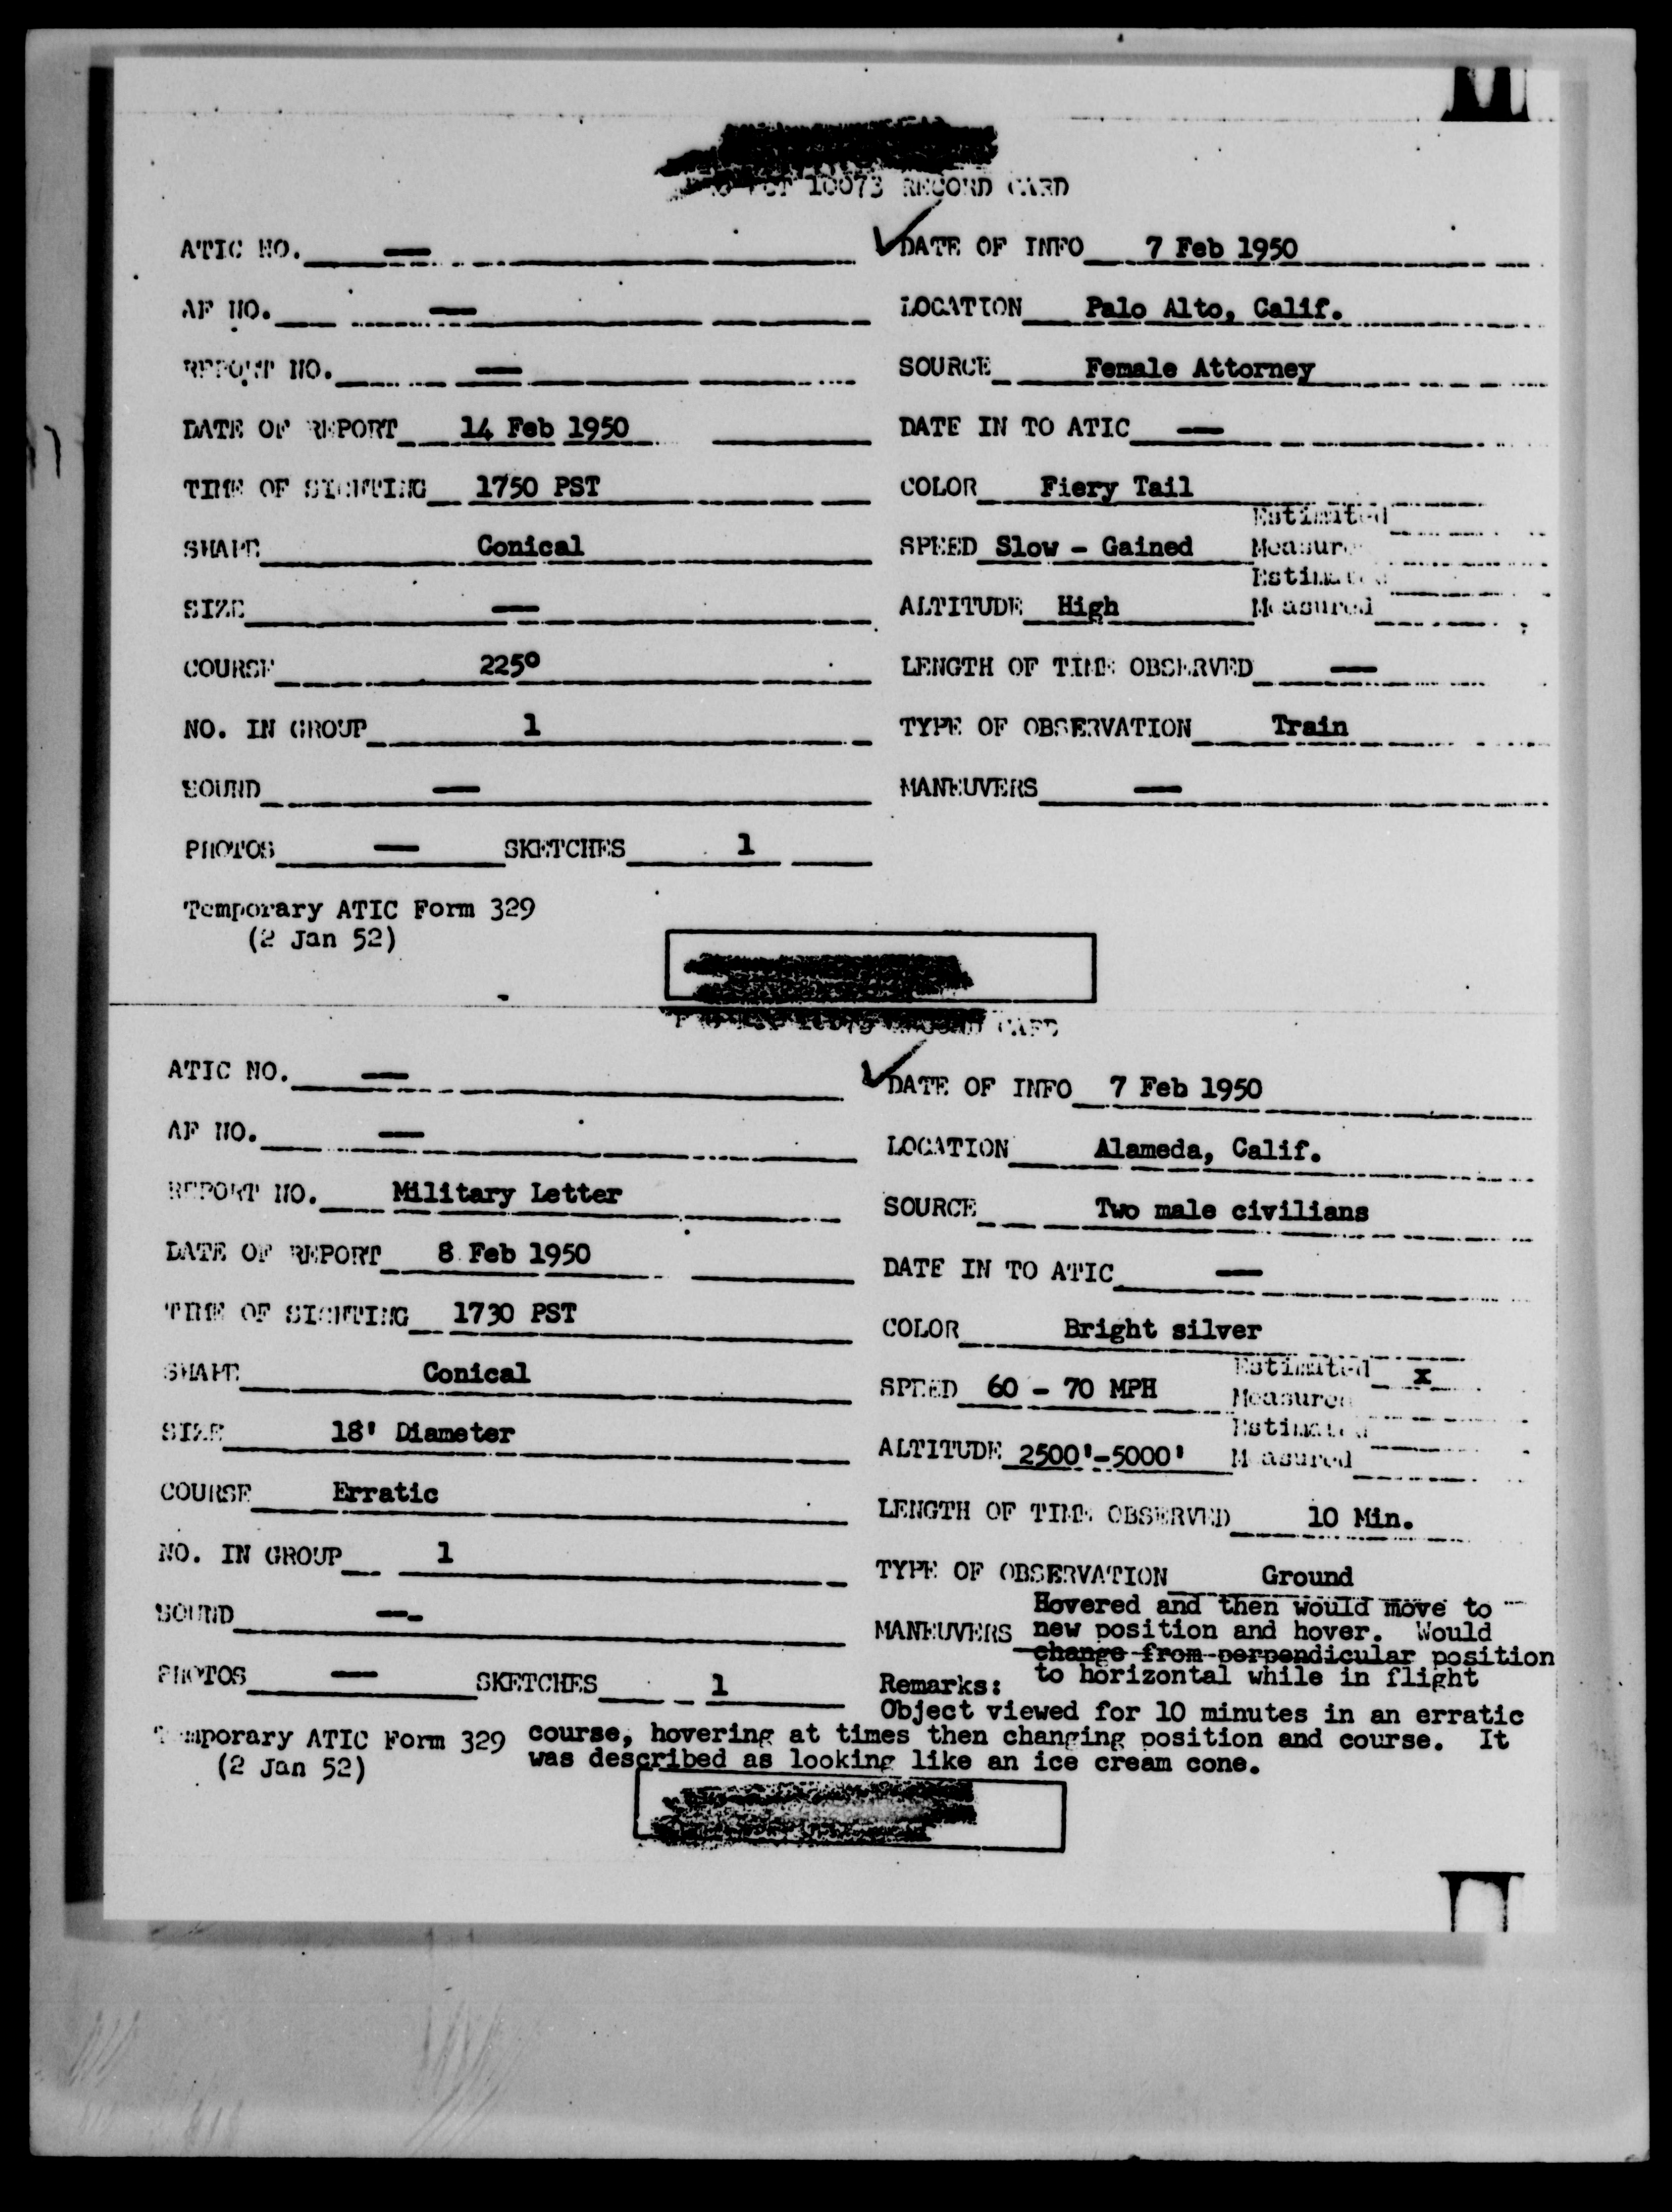 10073 RECORD CARD
ATIC NO. — DATE OF INFO 7 Feb 1950
AF NO. — LOCATION Palo Alto, Calif.
REPORT NO. — SOURCE Female Attorney
DATE OF REPORT 14 Feb 1950 DATE IN TO ATIC —
TIME OF SIGHTING 1750 PST COLOR Fiery Tail
Estimated
SHAPE Conical SPEED Slow - Gained Measured
Estimated
SIZE — ALTITUDE High Measured
COURSE 225° LENGTH OF TIME OBSERVED —
NO. IN GROUP 1 TYPE OF OBSERVATION Train
SOUND — MANEUVERS —
PHOTOS — SKETCHES 1
Temporary ATIC Form 329
(2 Jan 52)
CARD
ATIC NO. — DATE OF INFO 7 Feb 1950
AF NO. — LOCATION Alameda, Calif.
REPORT NO. Military Letter SOURCE Two male civilians
DATE OF REPORT 8 Feb 1950 DATE IN TO ATIC —
TIME OF SIGHTING 1730 PST COLOR Bright silver
Estimated x
SHAPE Conical SPEED 60 - 70 MPH Measured
Estimated
SIZE 18' Diameter ALTITUDE 2500'-5000' Measured
COURSE Erratic LENGTH OF TIME OBSERVED 10 Min.
NO. IN GROUP 1 TYPE OF OBSERVATION Ground
Hovered and then would move to
SOUND — MANEUVERS new position and hover. Would
change from perpendicular position
to horizontal while in flight
PHOTOS — SKETCHES 1 Remarks:
Object viewed for 10 minutes in an erratic
Temporary ATIC Form 329 course, hovering at times then changing position and course. It
(2 Jan 52) was described as looking like an ice cream cone.